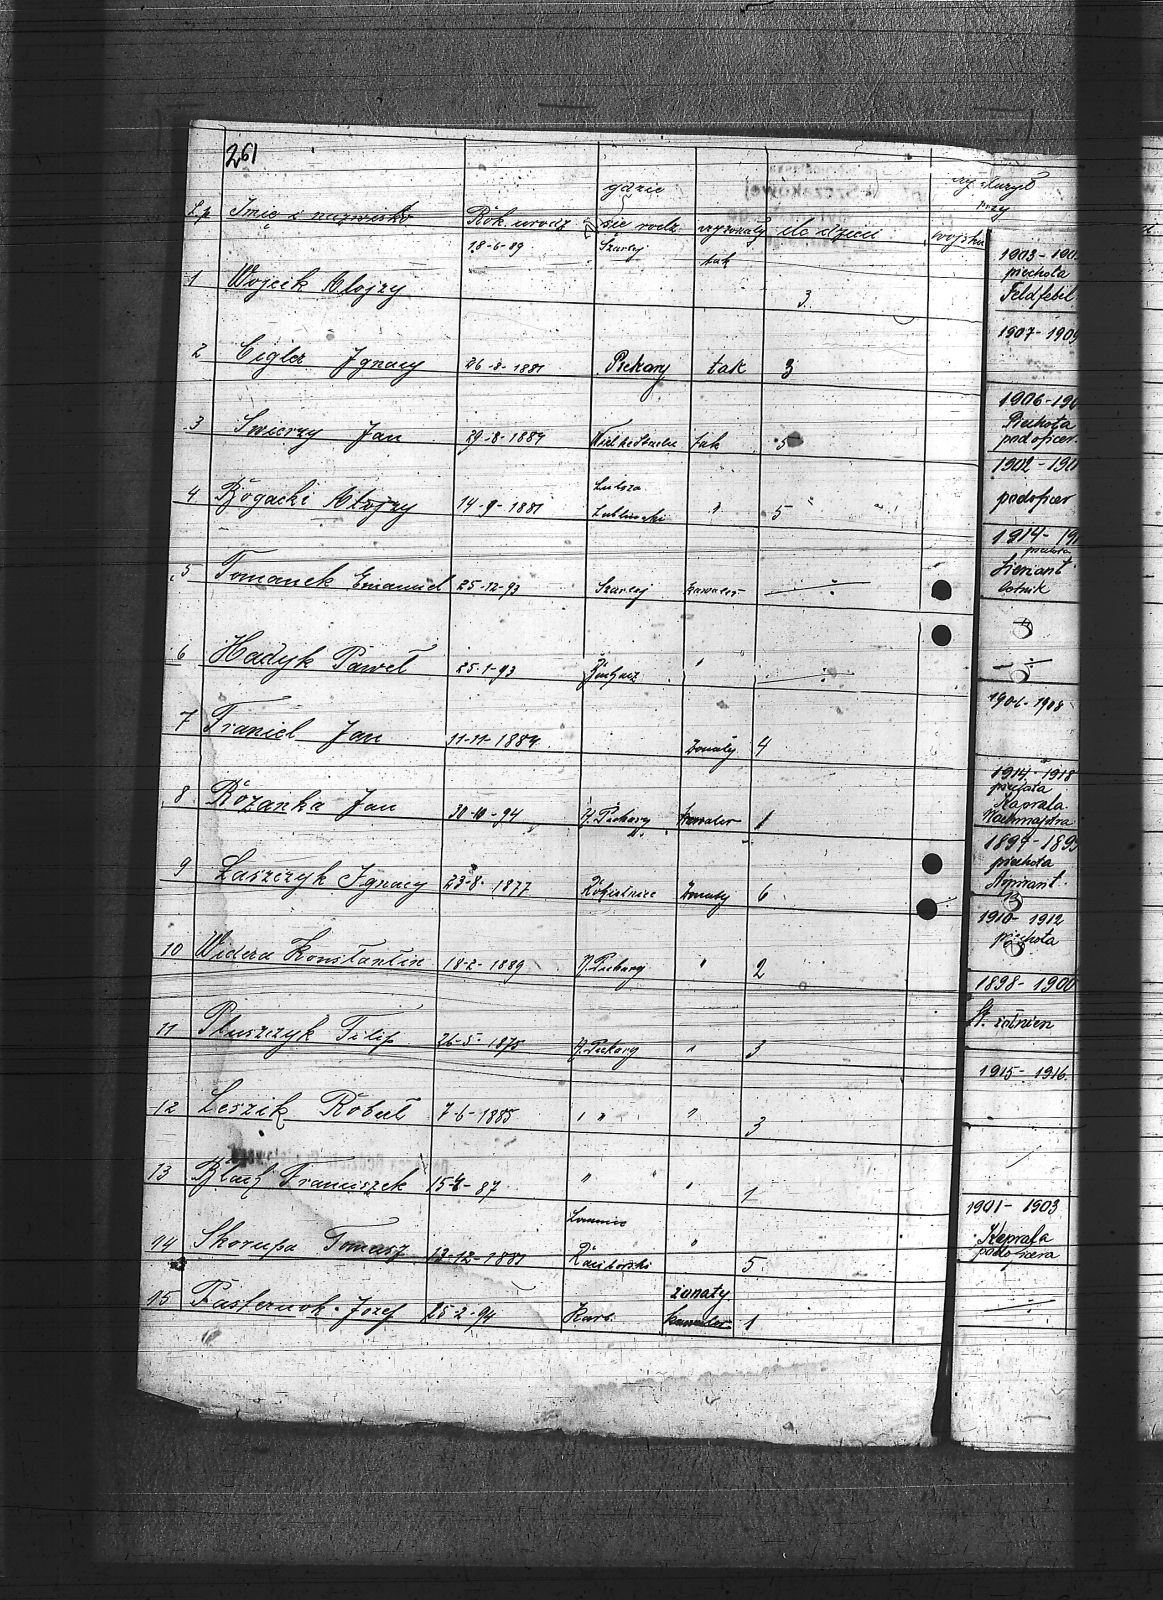 261
gdzie
czy służył
przy
L.p. Imię i nazwisko Rok urodz się rodz czy żonaty ile dzieci wojsku
1 Wojcik Alojzy 28-6-89 Szarlej tak 3 1903-190
piechota
Feldfebel
2 Cigler Ignacy 26-8-1881 Piekary tak 3 1907-1909
3 Swierzy Jan 29-8-1884 tak 5 1906-190
Piechota
podoficer.
4 Bögacki Alojzy 14-9-1881 Lubsza
Lubliniecki " 5 1902-190
podoficer
5 Tomanek Emanuel 25-12-93 Szarlej kawaler ÷ 1914-191
piechota
lienant
lotnik
6 Hadyk Paweł 25-1-93 " ÷ ÷
7 Franiel Jan 11-11-1884 żonaty 4 1906-1908
8 Rözanka Jan 30-10-94 W. Piekary kawaler 1 1914-1918
piechota
Kaprala
9 Laszczyk Ignacy 23-8-1877 Rokietnice żonaty 6 1897-1899
piechota
Aspirant.
10 Widera Konstantin 18-2-1889 W. Piekary " 2 1910-1912
piechota
11 Pluszczyk Filip 26-5-1875 W. Piekary " 3 1898-1900
St. żołnierz
12 Leszik Robert 7-6-1885 " " " 3 1915-1916.
13 Blach Franciszek 15-2-87 " " " 1
14 Skorupa Tomasz 13-12-1881
Raciborski " 5 1901-1903
Keprala
podoficera
15 Pasternok Jozef 25-2-94 Karb. żonaty
kawaler 1 ÷